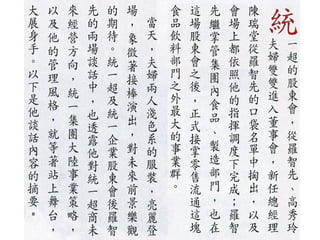 統一超的股東會，從羅智先、高秀玲
夫婦雙雙進入董事會，新任總經理
陳瑞堂從羅智先的口袋名單中掏出，以及
會場上都依照他的指揮調度下完成；羅智
先繼掌管集團內食品 製造部門，也在
這場股東會之後，正式接掌零售流通這塊
食品飲料部門之外最大的事業群。
當天，夫婦兩人淺色系的服裝，亮麗登
場，象徵著接棒演出，對未來前景樂觀
的期待。統一超及統一企業股東會後羅智
先的兩場談話中，也透露他對統一超商未
來經營方向，統一集團大陸事業策略，
以及他的管理風格，就等著站上舞台，
大展身手。以下是他談話內容的摘要。